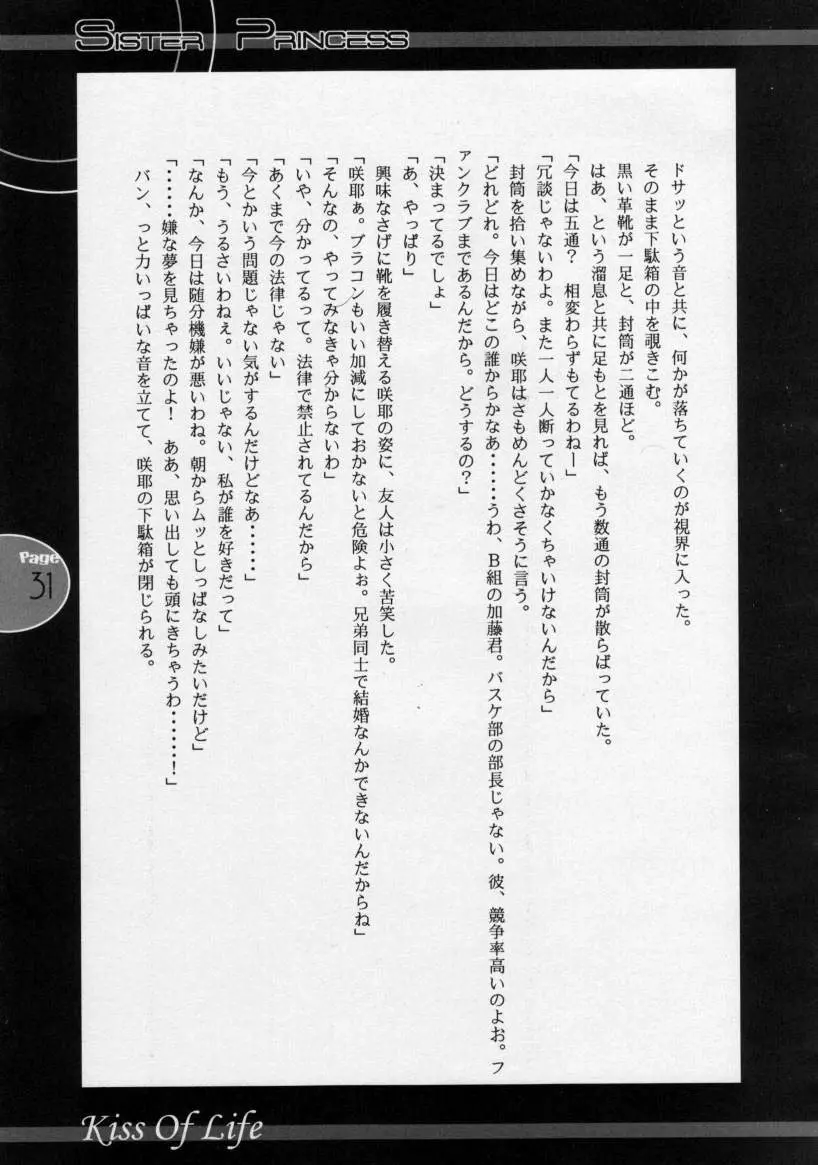 SISTER PRINCESS
ドサッという音と共に、何かが落ちていくのが視界に入った。
そのまま下駄箱の中を覗きこむ。
黒い革靴が一足と、封筒が二通ほど。
はあ、という溜息と共に足もとを見れば、もう数通の封筒が散らばっていた。
「今日は五通？　相変わらずもてるわねー」
「冗談じゃないわよ。また一人一人断っていかなくちゃいけないんだから」
封筒を拾い集めながら、咲耶はさもめんどくさそうに言う。
「どれどれ。今日はどこの誰からかなあ……うわ、Ｂ組の加藤君。バスケ部の部長じゃない。彼、競争率高いのよお。フ
アンクラブまであるんだから。どうするの？」
「決まってるでしょ」
「あ、やっぱり」
興味なさげに靴を履き替える咲耶の姿に、友人は小さく苦笑した。
「咲耶ぁ。ブラコンもいい加減にしておかないと危険よぉ。兄弟同士で結婚なんかできないんだからね」
「そんなの、やってみなきゃ分からないわ」
「いや、分かってるって。法律で禁止されてるんだから」
「あくまで今の法律じゃない」
「今とかいう問題じゃない気がするんだけどなあ……」
「もう、うるさいわねぇ。いいじゃない、私が誰を好きだって」
「なんか、今日は随分機嫌が悪いわね。朝からムッとしっぱなしみたいだけど」
「……嫌な夢を見ちゃったのよ！　ああ、思い出しても頭にきちゃうわ……！」
バン、っと力いっぱいな音を立てて、咲耶の下駄箱が閉じられる。
Page
31
Kiss Of Life